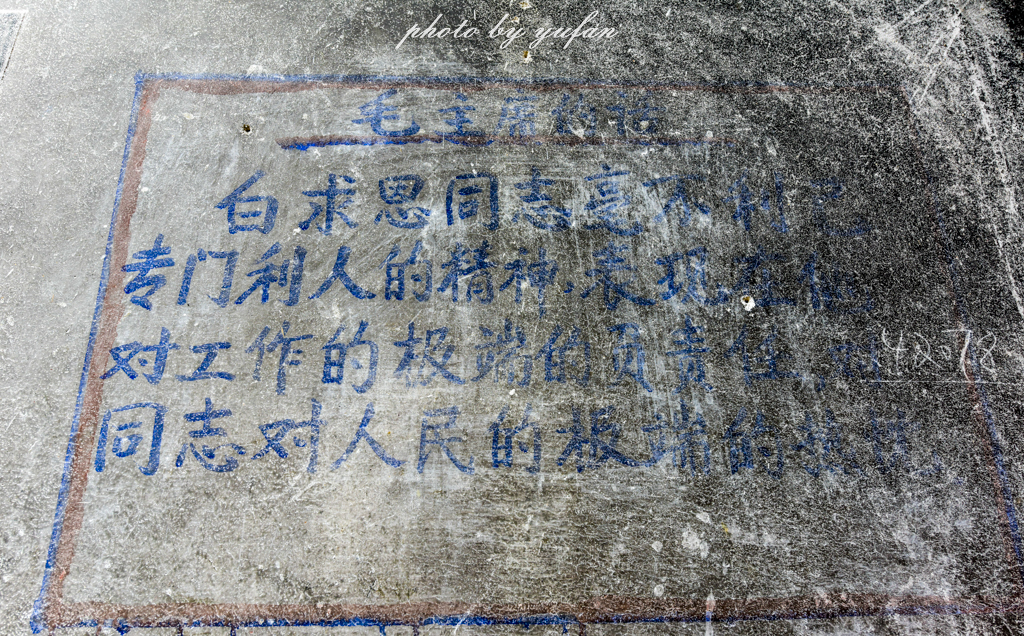 photo by yufan
毛主席的话
白求恩同志毫不利己
专门利人的精神,表现在他
对工作的极端的负责任,对
42078
同志对人民的极端的热忱。